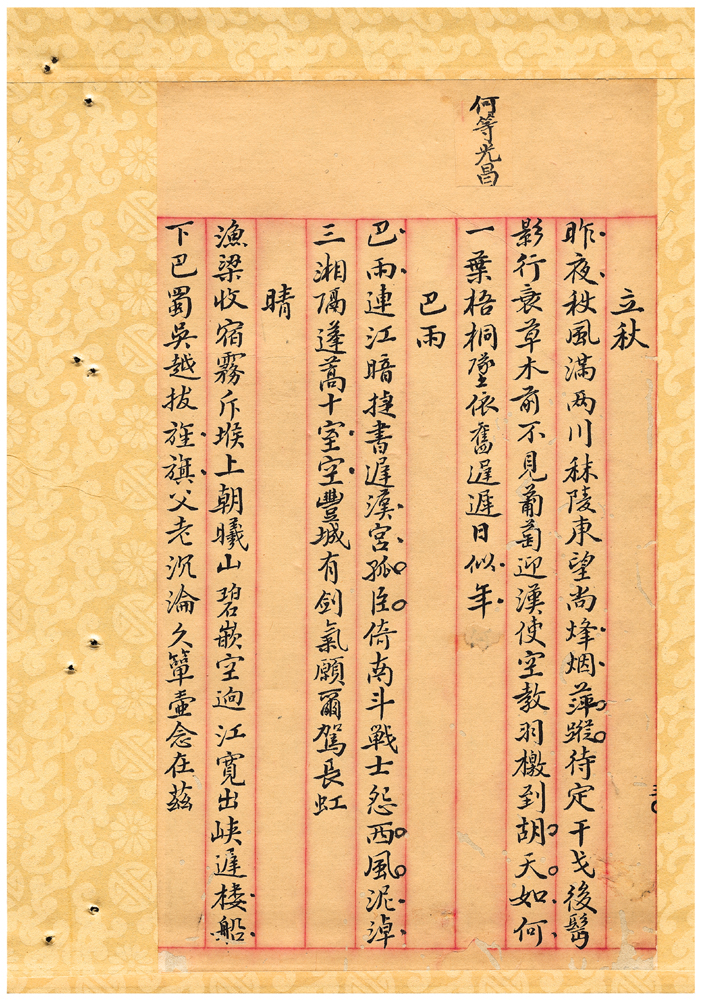 何等光昌
立秋
昨夜秋風滿兩川秣陵東望尚烽烟萍蹤待定干戈後髩
影行衰草木前不見葡萄迎漢使空教羽檄到胡天如何
一葉梧桐墜依舊遲遲日似年
巴雨
巴雨連江暗捷書遲漢宮孤臣倚南斗戰士怨西風泥淖
三湘隔蓬蒿十室空豐城有劍氣願爾駕長虹
晴
漁梁收宿霧斥堠上朝曦山碧嵌空逈江寬出峽遲樓船
下巴蜀吳越拔旌旗父老沉淪久簞壷念在茲